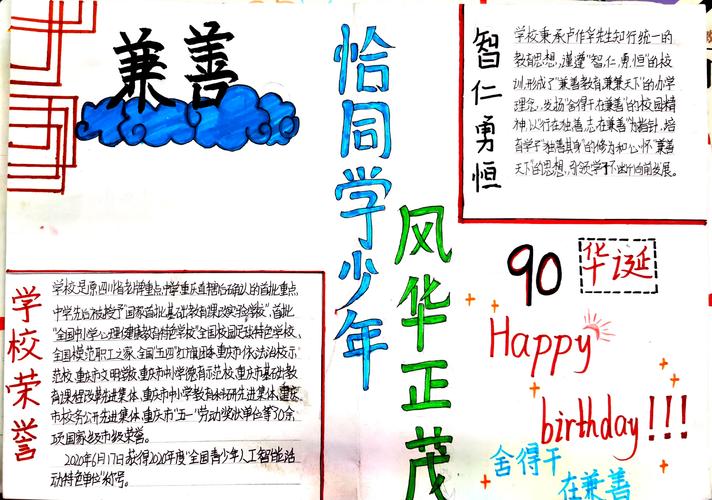 兼善
恰同学少年
风华正茂
智仁勇恒
学校秉承卢作孚先生知行统一的
教育思想,谨遵“智、仁、勇、恒”的校
训,形成了“兼善教育,兼兼天下”的办学
理念,发扬“舍得干,在兼善”的校园精
神,以“行在独善,志在兼善”为指针,培
育学子“独善其身”的修为和心怀“兼善
天下”的思想,引领学子不断向前发展。
90
华诞
Happy
birthday!!!
舍得干
在兼善
学校荣誉
学校是原四川省老牌重点中学,重庆直辖后确认的首批重点
中学,先后被授予“国家首批基础教育课改实验学校”、首批
“全国中小学心理健康教育特色学校”、全国校园足球特色学校、
全国模范职工之家、全国“五四”红旗团委、重庆市依法治校示
范校、重庆市文明学校、重庆市中小学德育示范校、重庆市基础教
育课程改革先进集体、重庆市中小学教育科研先进集体、重庆
市校务公开先进集体、重庆市“五一”劳动奖状单位等30余
项国家级、市级荣誉。
2020年6月17日获得2020年度“全国青少年人工智能活
动特色单位”称号。